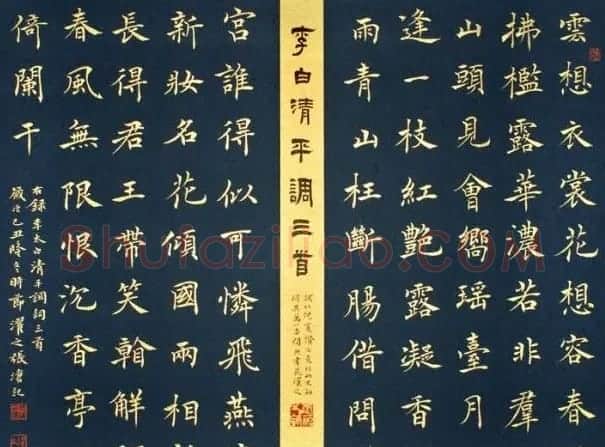 雲想衣裳花想容春
拂檻露華濃若非羣
山頭見會嚮瑤臺月
逢一枝紅艷露凝香
雨青山枉斷腸借問
李白清平調三首
宮誰得似可憐飛燕
新妝名花傾國兩相
長得君王帶笑看解
春風無限恨沉香亭
倚闌干
右錄李太白清平調詞三首
歲次己丑隆冬時節濯之張
Shufaziliao.com